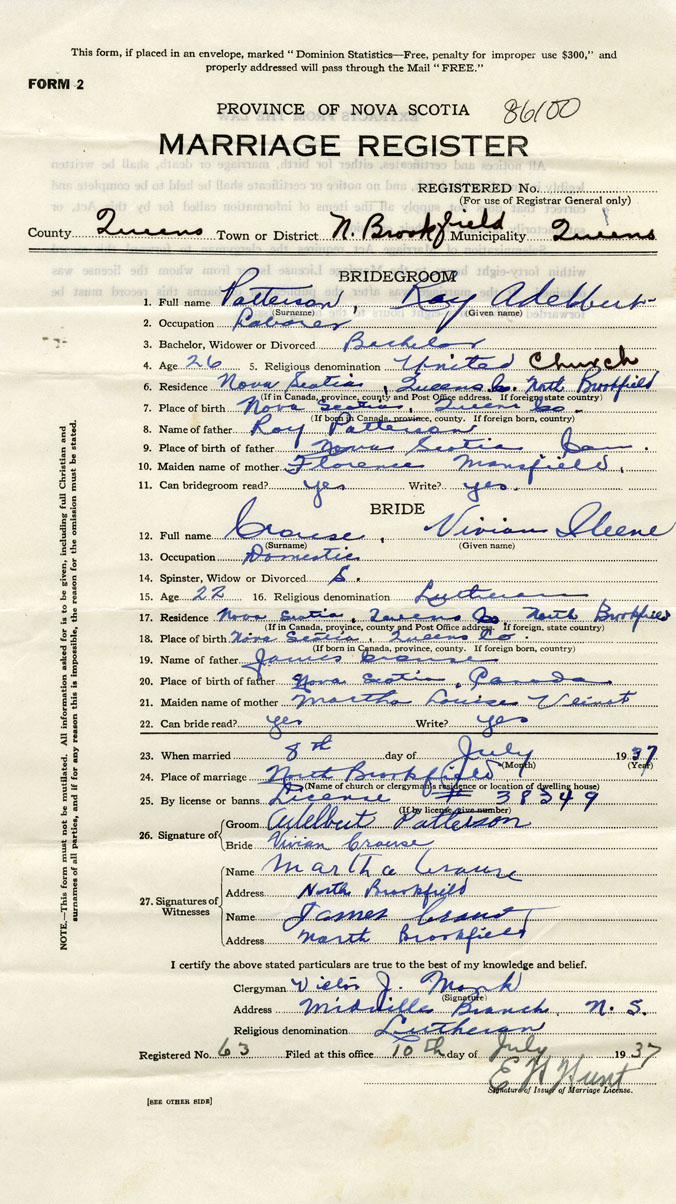 This form, if placed in an envelope, marked "Dominion Statistics—Free, penalty for improper use $300," and
properly addressed will pass through the Mail "FREE."
FORM 2
PROVINCE OF NOVA SCOTIA 86100
MARRIAGE REGISTER
REGISTERED No.
(For use of Registrar General only)
County Queens Town or District N. Brookfield Municipality Queens
BRIDEGROOM
1. Full name Patterson, Ray Adelbert
(Surname) (Given name)
2. Occupation Laborer
3. Bachelor, Widower or Divorced Bachelor
4. Age 26 5. Religious denomination United Church
6. Residence Nova Scotia, Queens Co. North Brookfield
(If in Canada, province, county and Post Office address. If foreign, state country)
7. Place of birth Nova Scotia, Queens Co.
(If born in Canada, province, county. If foreign born, country)
8. Name of father Roy Patterson
9. Place of birth of father Nova Scotia Can.
10. Maiden name of mother Florence Mansfield,
11. Can bridegroom read? yes Write? yes.
BRIDE
12. Full name Crouse, Vivian Ileene
(Surname) (Given name)
13. Occupation Domestic
14. Spinster, Widow or Divorced S.
15. Age 22 16. Religious denomination Lutheran
17. Residence Nova Scotia, Queens Co North Brookfield
(If in Canada, province, county and Post Office address. If foreign, state country)
18. Place of birth Nova Scotia, Queens Co.
(If born in Canada, province, county. If foreign born, country)
19. Name of father James Crouse
20. Place of birth of father Nova Scotia, Canada
21. Maiden name of mother Martha Louise Veinot
22. Can bride read? yes Write? yes
23. When married 8th day of July 1937
(Month) (Year)
24. Place of marriage North Brookfield
(Name of church or clergyman's residence or location of dwelling house)
25. By license or banns License # 38349
(If by license, give number)
26. Signature of Groom Adelbert Patterson
Bride Vivian Crouse
27. Signatures of Witnesses Name Martha Crouse
Address North Brookfield
Name James Crouse
Address North Brookfield
I certify the above stated particulars are true to the best of my knowledge and belief.
Clergyman Victor J. Monk
(Signature)
Address Midville Branch, N. S.
Religious denomination Lutheran
Registered No. 63 Filed at this office 10th day of July 1937
E H Hunt
Signature of Issuer of Marriage License.
[SEE OTHER SIDE]
NOTE.—This form must not be mutilated. All information asked for is to be given, including full Christian and
surnames of all parties, and if for any reason this is impossible, the reason for the omission must be stated.